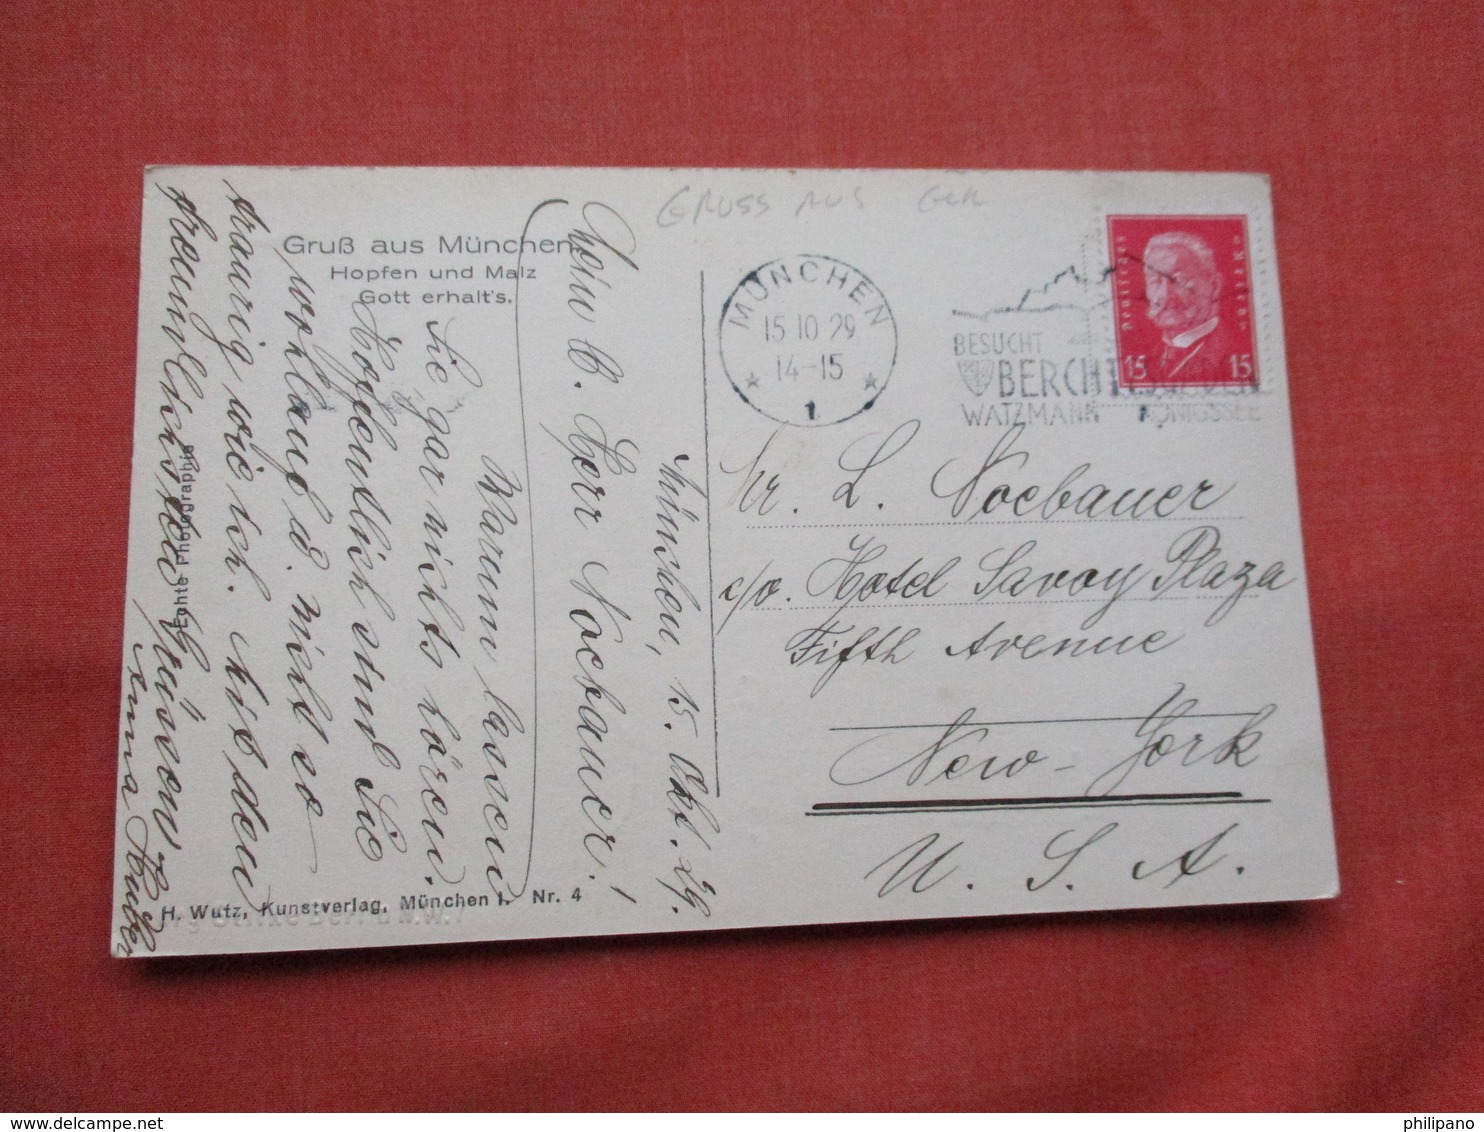 GRUSS AUS GER
Gruß aus München
Hopfen und Malz
Gott erhalt's.
MÜNCHEN
15 10 29
14-15
1
BESUCHT
BERCHT
WATZMANN KÖNIGSSEE
Deutsches Reich
15 15
Mr. L. Noebauer
c/o. Hotel Savoy Plaza
Fifth Avenue
New-York
U. S. A.
München, 15. Okt. 29.
Herr Noebauer!
Warum lassen
Sie gar nichts hören.
Hoffentlich sind Sie
wohlauf u. nicht so
traurig wie ich. Mit den
freundlichsten Grüssen
Anna
Echte Photographie
H. Wutz, Kunstverlag, München I. Nr. 4
philipano